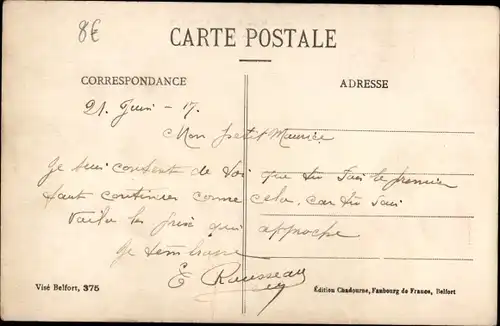 8€
CARTE POSTALE
CORRESPONDANCE
ADRESSE
21 Juin - 17.
Mon petit Maurice
Je suis content de toi que tu sois le premier
faut continuer comme cela, car tu sais
voila les prix qui approche
Je t'embrasse
E Rousseau
Visé Belfort, 375
Édition Chadourne, Faubourg de France, Belfort